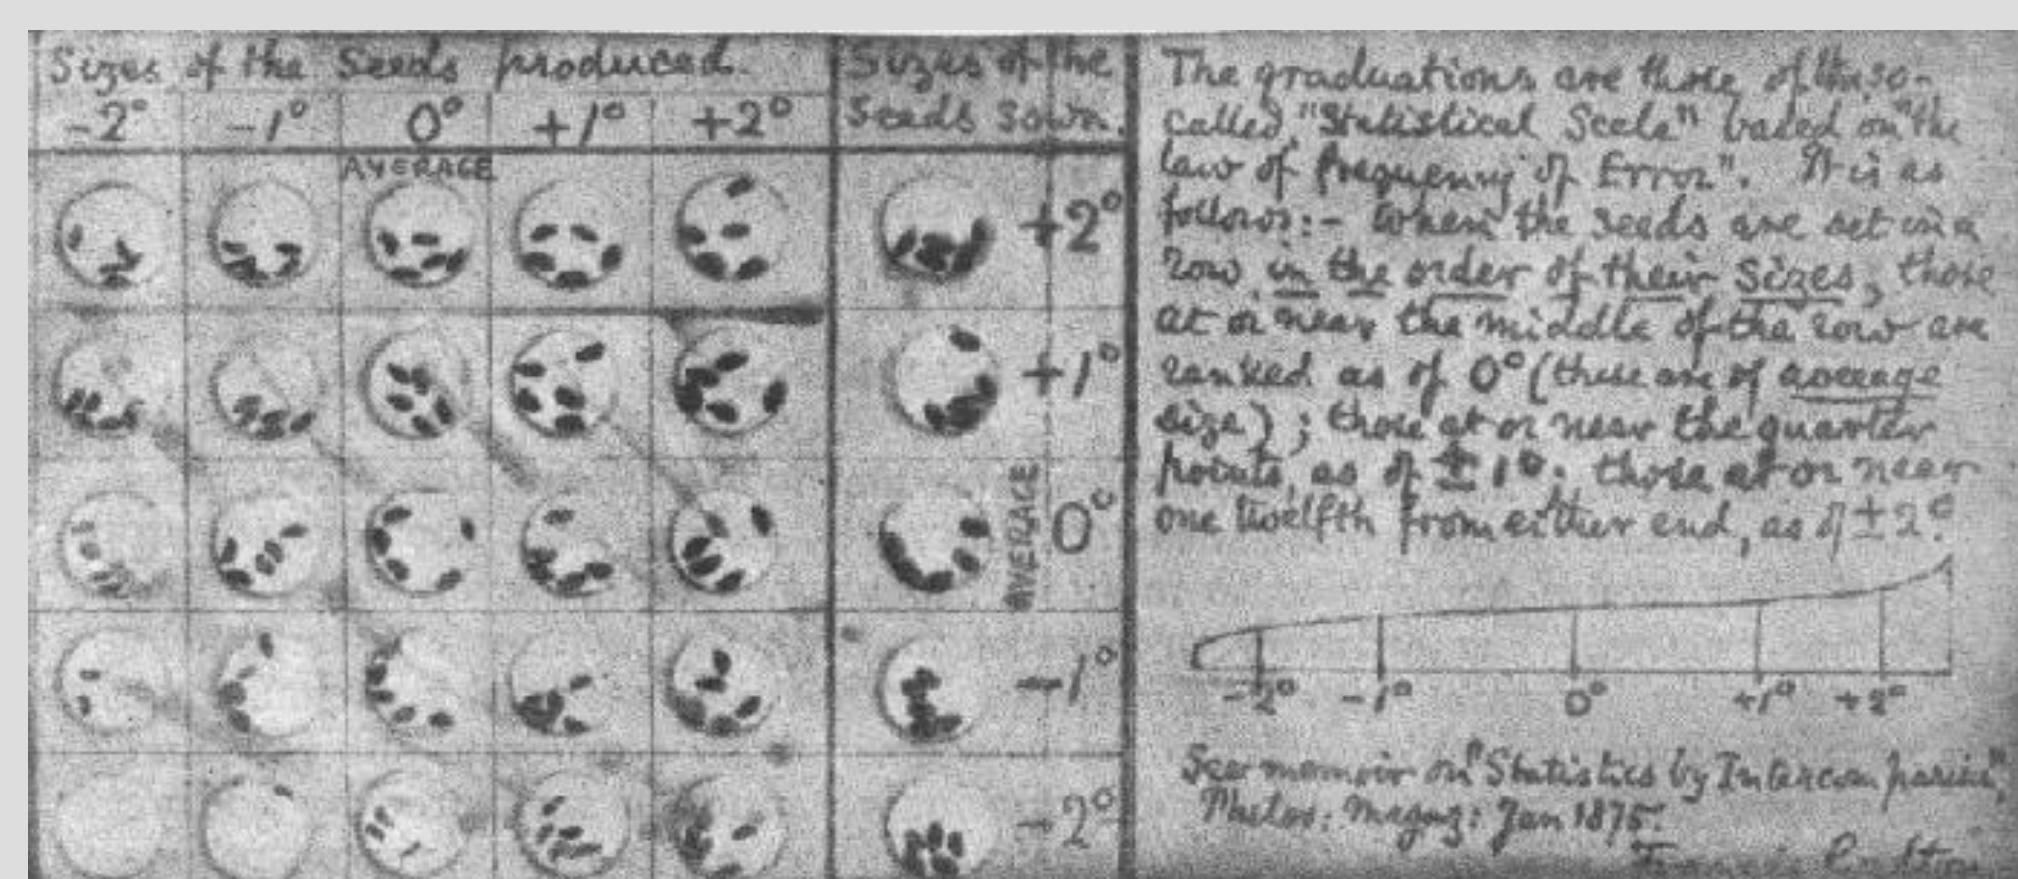 Sizes of the Seeds produced.
-2° -1° 0° +1° +2°
AVERAGE
Sizes of the
Seeds Sown.
+2°
+1°
AVERAGE 0°
-1°
-2°
The graduations are those of the so-
called, "Statistical Scale" based on "the
law of frequency of Error". It is as
follows:- When the seeds are set in a
row in the order of their sizes, those
at or near the middle of the row are
ranked as of 0° (these are of average
size); those at or near the quarter
points, as of ±1°; those at or near
one twelfth from either end, as of ±2°.
-2° -1° 0° +1° +2°
See memoir on "Statistics by Intercomparison",
Philos: Magaz: Jan 1875.
Francis Galton